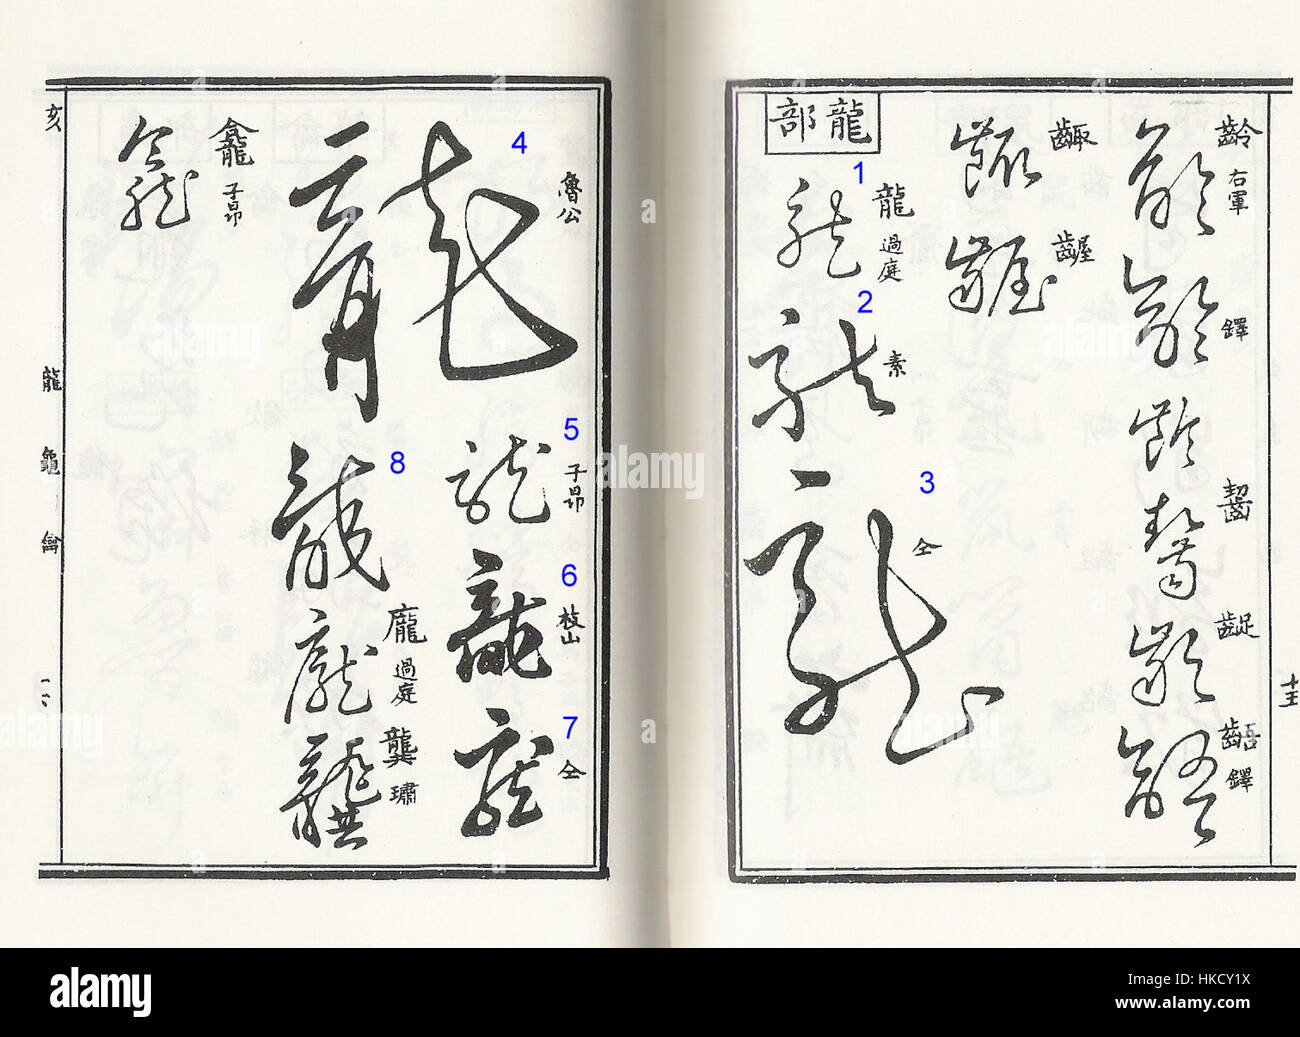 齡 右軍
鐸
齧
齪
齬 鐸
齱
齷
龍部
1
龍 過庭
2
素
3
仝
十五
4
魯公
5
子昂
6
枝山
7
仝
8
龐 過庭
龔 璛
龕 子昂
亥
龍 龜 龠
alamy
a
Image ID: HKCY1X
www.alamy.com